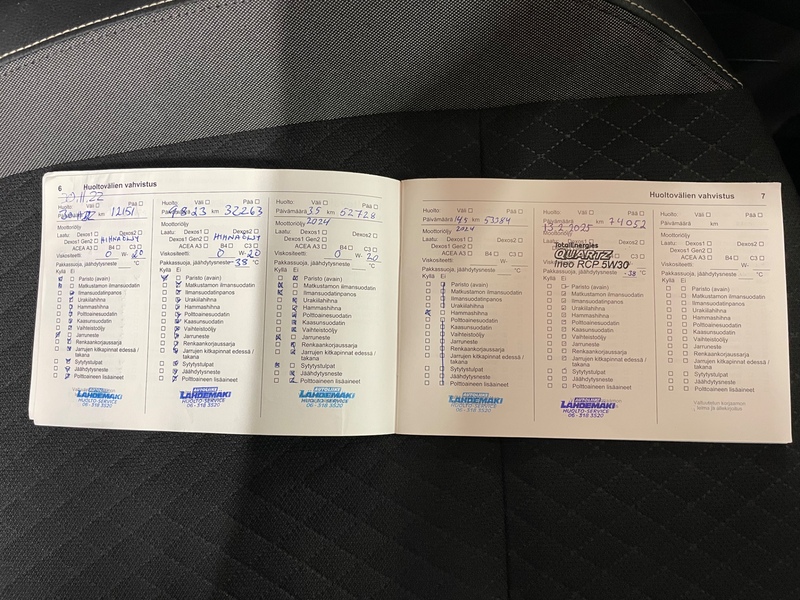 6 Huoltovälien vahvistus
30.11.22
Huolto: Väli ☐ Pää ☐
Päivämäärä km 12151
Moottoriöljy
Laatu: Dexos1 ☐ Dexos2 ☐
Dexos1 Gen2 ☐ HINNAÖLJY
ACEA A3 ☐ B4 ☐ C3 ☐
Viskositeetti: 0 W- 20
Pakkassuoja, jäähdytysneste °C
Kyllä Ei
Paristo (avain)
Matkustamon ilmansuodatin
Ilmansuodatinpanos
Urakiilahihna
Hammashihna
Polttoainesuodatin
Kaasunsuodatin
Vaihteistoöljy
Jarruneste
Renkaankorjaussarja
Jarrujen kitkapinnat edessä /
takana
Sytytystulpat
Jäähdytysneste
Polttoaineen lisäaineet
AUTOLIIKE
LÄHDEMÄKI
HUOLTO-SERVICE
06-318 3520
Huolto: Väli ☐ Pää ☐
Päivämäärä 9.8.23 km 32263
Moottoriöljy
Laatu: Dexos1 ☐ Dexos2 ☐
Dexos1 Gen2 ☐
ACEA A3 ☐ B4 ☐ C3 ☐
Viskositeetti: 0 W- 20
Pakkassuoja, jäähdytysneste -38 °C
Kyllä Ei
Paristo (avain)
Matkustamon ilmansuodatin
Ilmansuodatinpanos
Urakiilahihna
Hammashihna
Polttoainesuodatin
Kaasunsuodatin
Vaihteistoöljy
Jarruneste
Renkaankorjaussarja
Jarrujen kitkapinnat edessä /
takana
Sytytystulpat
Jäähdytysneste
Polttoaineen lisäaineet
AUTOLIIKE
LÄHDEMÄKI
HUOLTO-SERVICE
06-318 3520
Huolto: Väli ☐ Pää ☐
Päivämäärä 3.5 km 52728
Moottoriöljy 2024
Laatu: Dexos1 ☐ Dexos2 ☐
Dexos1 Gen2 ☐
ACEA A3 ☐ B4 ☐ C3 ☐
Viskositeetti: 0 W- 20
Pakkassuoja, jäähdytysneste °C
Kyllä Ei
Paristo (avain)
Matkustamon ilmansuodatin
Ilmansuodatinpanos
Urakiilahihna
Hammashihna
Polttoainesuodatin
Kaasunsuodatin
Vaihteistoöljy
Jarruneste
Renkaankorjaussarja
Jarrujen kitkapinnat edessä /
takana
Sytytystulpat
Jäähdytysneste
Polttoaineen lisäaineet
AUTOLIIKE
LÄHDEMÄKI
HUOLTO-SERVICE
06-318 3520
Huoltovälien vahvistus 7
Huolto: Väli ☐ Pää ☐
Päivämäärä 14.5 km 53384
Moottoriöljy 2024
Laatu: Dexos1 ☐ Dexos2 ☐
Dexos1 Gen2 ☐
ACEA A3 ☐ B4 ☐ C3 ☐
Viskositeetti: W-
Pakkassuoja, jäähdytysneste °C
Kyllä Ei
Paristo (avain)
Matkustamon ilmansuodatin
Ilmansuodatinpanos
Urakiilahihna
Hammashihna
Polttoainesuodatin
Kaasunsuodatin
Vaihteistoöljy
Jarruneste
Renkaankorjaussarja
Jarrujen kitkapinnat edessä /
takana
Sytytystulpat
Jäähdytysneste
Polttoaineen lisäaineet
AUTOLIIKE
LÄHDEMÄKI
HUOLTO-SERVICE
06-318 3520
Huolto: Väli ☐ Pää ☐
Päivämäärä km 74052
13.2.2025
Moottoriöljy
TotalEnergies
QUARTZ
Ineo RCP 5W30
Pakkassuoja, jäähdytysneste -38 °C
Kyllä Ei
Paristo (avain)
Matkustamon ilmansuodatin
Ilmansuodatinpanos
Urakiilahihna
Hammashihna
Polttoainesuodatin
Kaasunsuodatin
Vaihteistoöljy
Jarruneste
Renkaankorjaussarja
Jarrujen kitkapinnat edessä /
takana
Sytytystulpat
Jäähdytysneste
Polttoaineen lisäaineet
AUTOLIIKE
LÄHDEMÄKI
HUOLTO-SERVICE
06-318 3520
Huolto: Väli ☐ Pää ☐
Päivämäärä km
Moottoriöljy
Laatu: Dexos1 ☐ Dexos2 ☐
Dexos1 Gen2 ☐
ACEA A3 ☐ B4 ☐ C3 ☐
Viskositeetti: W-
Pakkassuoja, jäähdytysneste °C
Kyllä Ei
Paristo (avain)
Matkustamon ilmansuodatin
Ilmansuodatinpanos
Urakiilahihna
Hammashihna
Polttoainesuodatin
Kaasunsuodatin
Vaihteistoöljy
Jarruneste
Renkaankorjaussarja
Jarrujen kitkapinnat edessä /
takana
Sytytystulpat
Jäähdytysneste
Polttoaineen lisäaineet
Valtuutetun korjaamon
leima ja allekirjoitus